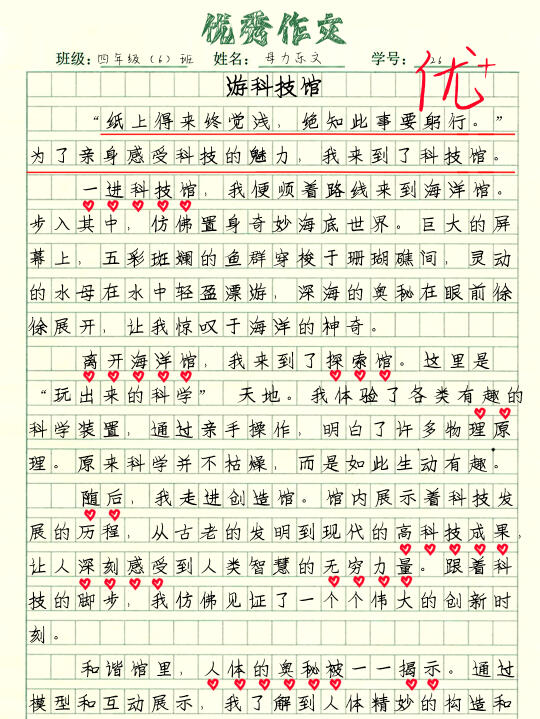 优秀作文
班级：四年级（6）班 姓名：母力乐文 学号：26
优+
游科技馆
“纸上得来终觉浅，绝知此事要躬行。”
为了亲身感受科技的魅力，我来到了科技馆。
一进科技馆，我便顺着路线来到海洋馆。
步入其中，仿佛置身奇妙海底世界。巨大的屏
幕上，五彩斑斓的鱼群穿梭于珊瑚礁间，灵动
的水母在水中轻盈漂游，深海的奥秘在眼前徐
徐展开，让我惊叹于海洋的神奇。
离开海洋馆，我来到了探索馆。这里是
“玩出来的科学”天地。我体验了各类有趣的
科学装置，通过亲手操作，明白了许多物理原
理。原来科学并不枯燥，而是如此生动有趣。
随后，我走进创造馆。馆内展示着科技发
展的历程，从古老的发明到现代的高科技成果，
让人深刻感受到人类智慧的无穷力量。跟着科
技的脚步，我仿佛见证了一个个伟大的创新时
刻。
和谐馆里，人体的奥秘被一一揭示。通过
模型和互动展示，我了解到人体精妙的构造和